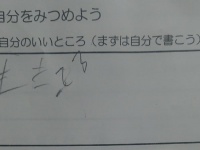 自分をみつめよう
自分のいいところ（まずは自分で書こう）